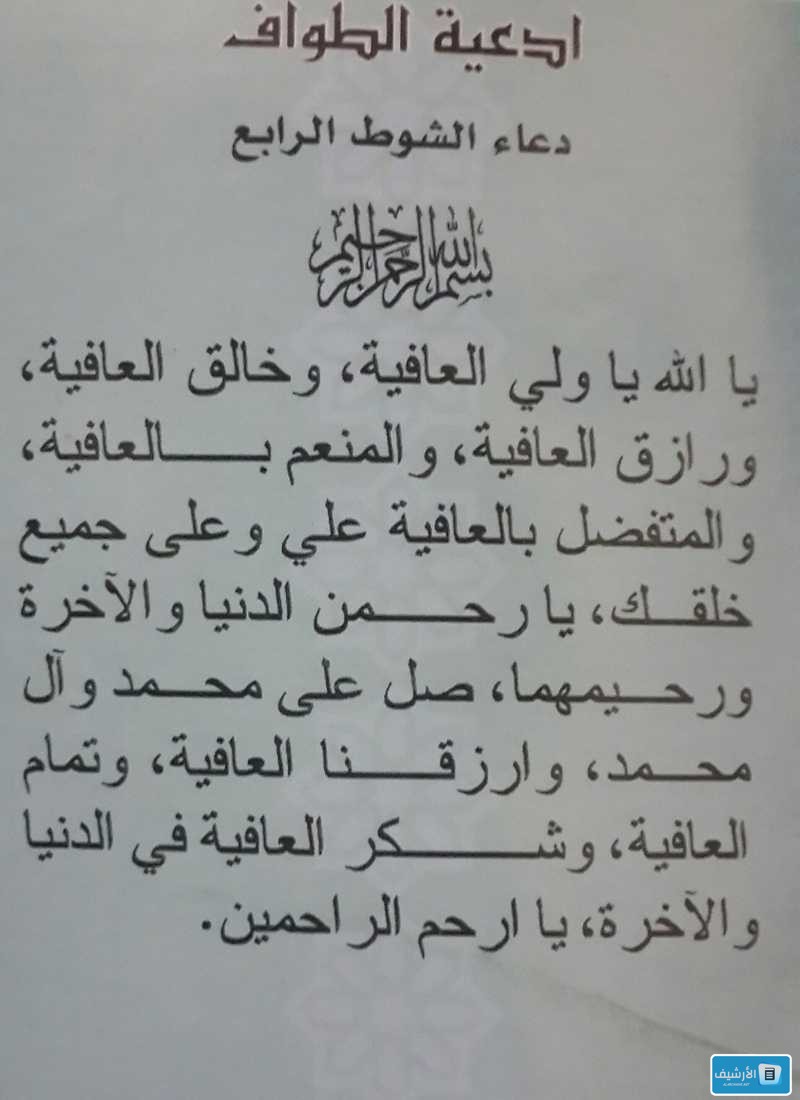 ادعية الطواف
دعاء الشوط الرابع
بسم الله الرحمن الرحيم
يا الله يا ولي العافية، وخالق العافية،
ورازق العافية، والمنعم بالعافية،
والمتفضل بالعافية علي وعلى جميع
خلقك، يا رحمن الدنيا والآخرة
ورحيمهما، صل على محمد وآل
محمد، وارزقنا العافية، وتمام
العافية، وشكر العافية في الدنيا
والآخرة، يا ارحم الراحمين.
الأرشيف